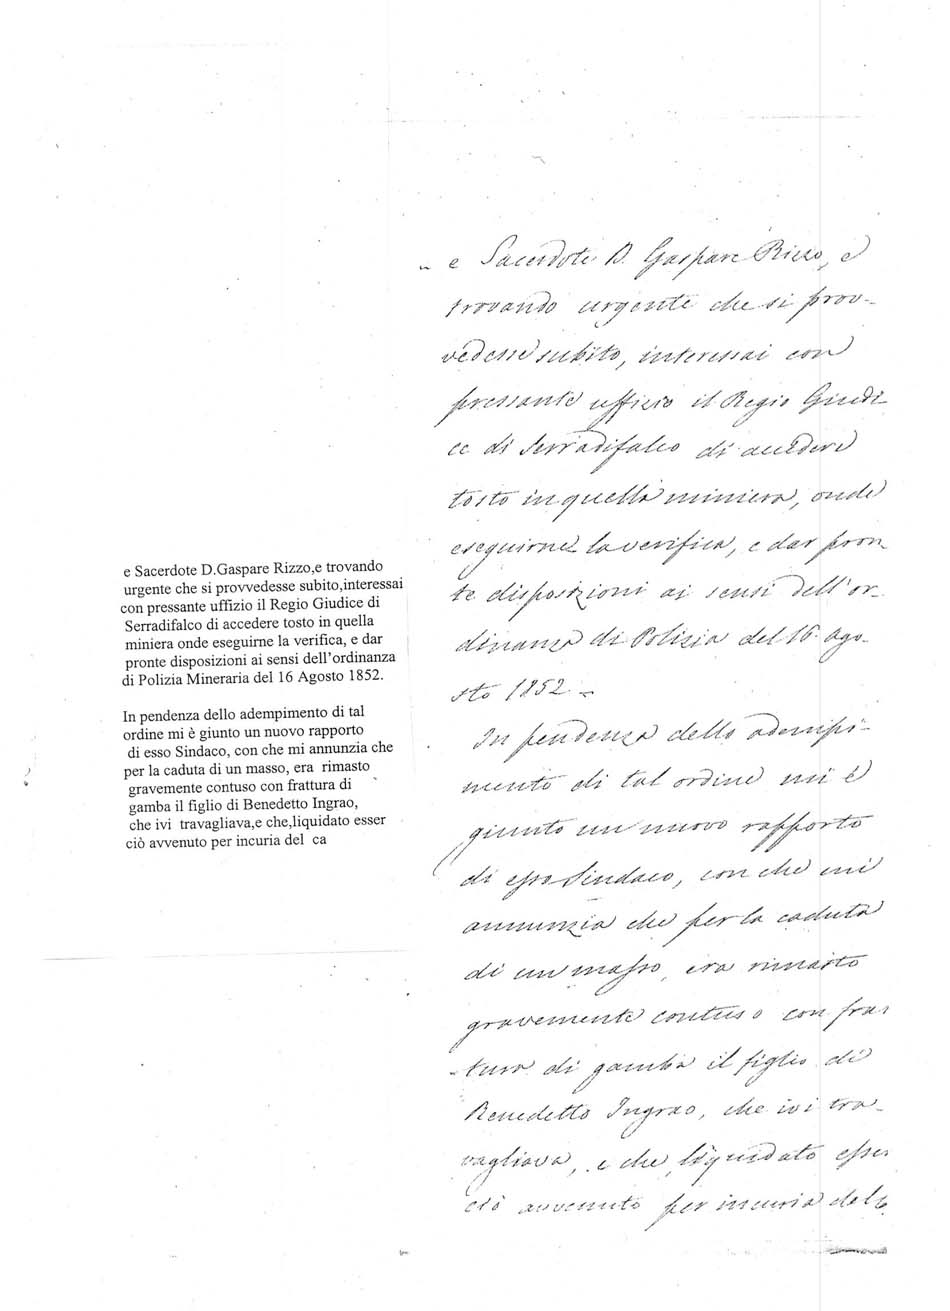 e Sacerdote D.Gaspare Rizzo,e trovando
urgente che si provvedesse subito,interessai
con pressante uffizio il Regio Giudice di
Serradifalco di accedere tosto in quella
miniera onde eseguirne la verifica, e dar
pronte disposizioni ai sensi dell'ordinanza
di Polizia Mineraria del 16 Agosto 1852.
In pendenza dello adempimento di tal
ordine mi è giunto un nuovo rapporto
di esso Sindaco, con che mi annunzia che
per la caduta di un masso, era rimasto
gravemente contuso con frattura di
gamba il figlio di Benedetto Ingrao,
che ivi travagliava,e che,liquidato esser
ciò avvenuto per incuria del ca
e Sacerdote D. Gaspare Rizzo, e
trovando urgente che si prov-
vedesse subito, interessai con
pressante uffizio il Regio Giudi-
ce di Serradifalco di accedere
tosto in quella miniera, onde
eseguirne la verifica, e dar pron
te disposizioni ai sensi dell'or-
dinanza di Polizia del 16 ago-
sto 1852 -
In pendenza dello adempi-
mento di tal ordine mi è
giunto un nuovo rapporto
di esso Sindaco, con che mi
annunzia che per la caduta
di un masso era rimasto
gravemente contuso con frat
tura di gamba il figlio di
Benedetto Ingrao, che ivi tra-
vagliava, e che, liquidato esser
ciò avvenuto per incuria del